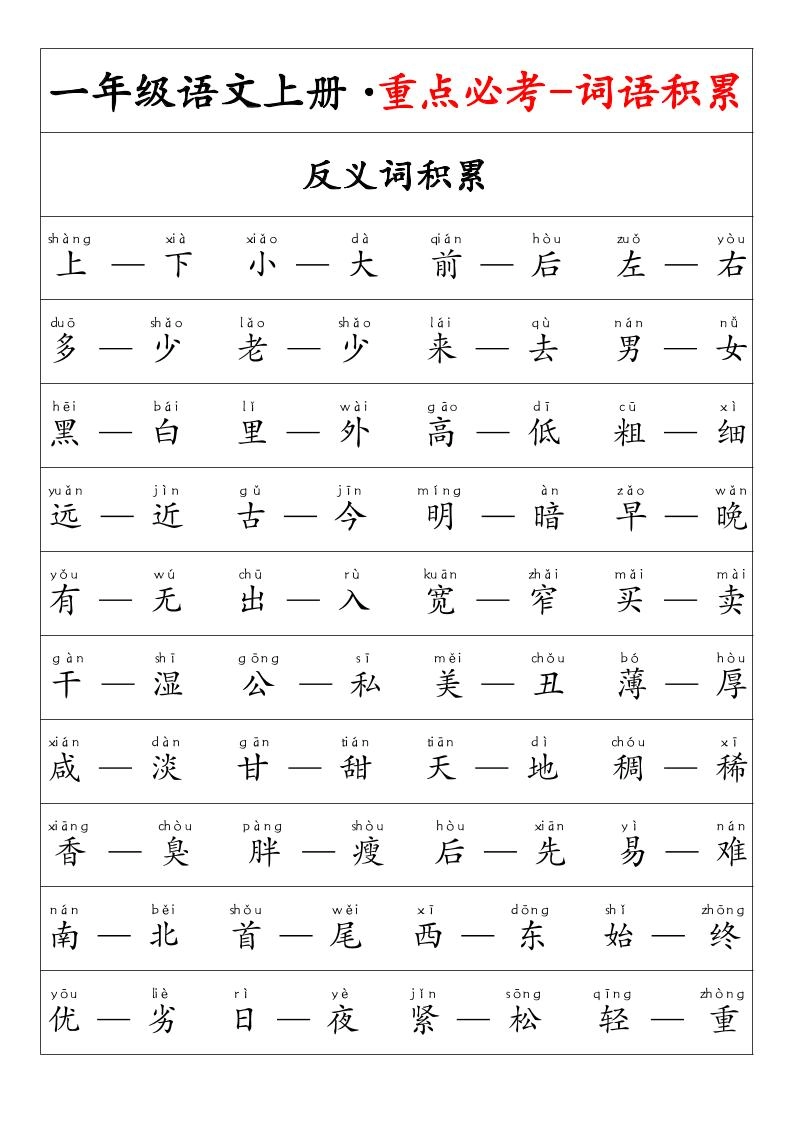 一年级语文上册·重点必考-词语积累
反义词积累
shàng xià xiǎo dà qián hòu zuǒ yòu
上 — 下 小 — 大 前 — 后 左 — 右
duō shǎo lǎo shǎo lái qù nán nǚ
多 — 少 老 — 少 来 — 去 男 — 女
hēi bái lǐ wài gāo dī cū xì
黑 — 白 里 — 外 高 — 低 粗 — 细
yuǎn jìn gǔ jīn míng àn zǎo wǎn
远 — 近 古 — 今 明 — 暗 早 — 晚
yǒu wú chū rù kuān zhǎi mǎi mài
有 — 无 出 — 入 宽 — 窄 买 — 卖
gàn shī gōng sī měi chǒu bó hòu
干 — 湿 公 — 私 美 — 丑 薄 — 厚
xián dàn gān tián tiān dì chóu xī
咸 — 淡 甘 — 甜 天 — 地 稠 — 稀
xiāng chòu pàng shòu hòu xiān yì nán
香 — 臭 胖 — 瘦 后 — 先 易 — 难
nán běi shǒu wěi xī dōng shǐ zhōng
南 — 北 首 — 尾 西 — 东 始 — 终
yōu liè rì yè jǐn sōng qīng zhòng
优 — 劣 日 — 夜 紧 — 松 轻 — 重